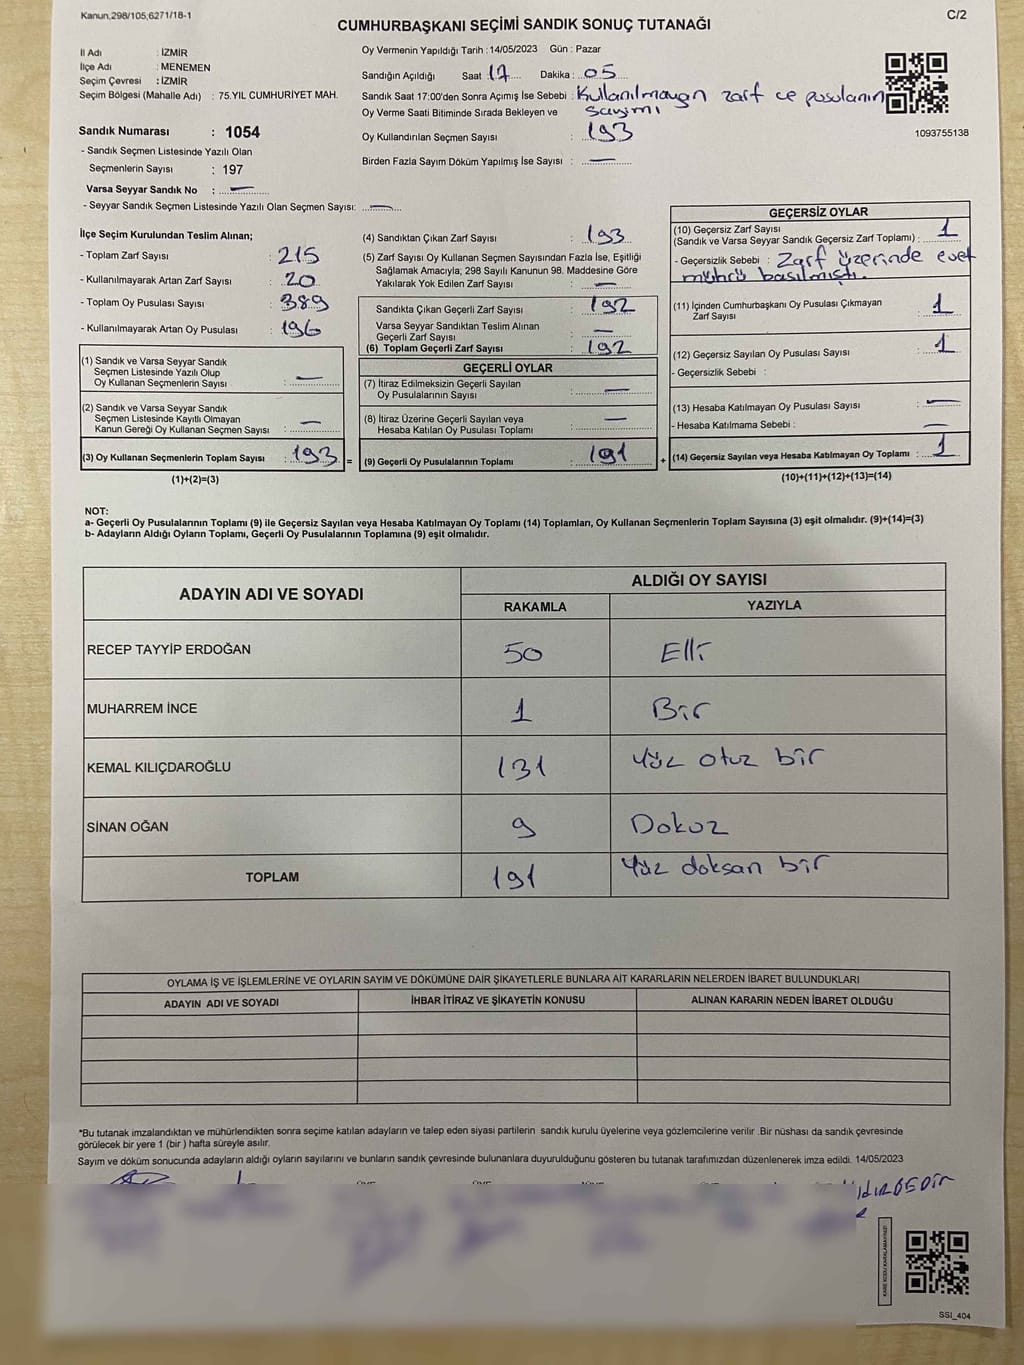 Kanun,298/105;6271/18-1
C/2
CUMHURBAŞKANI SEÇİMİ SANDIK SONUÇ TUTANAĞI
İl Adı : İZMİR
İlçe Adı : MENEMEN
Seçim Çevresi : İZMİR
Seçim Bölgesi (Mahalle Adı) : 75.YIL CUMHURİYET MAH.
Sandık Numarası : 1054
- Sandık Seçmen Listesinde Yazılı Olan
Seçmenlerin Sayısı : 197
Varsa Seyyar Sandık No : —
- Seyyar Sandık Seçmen Listesinde Yazılı Olan Seçmen Sayısı: —
Oy Vermenin Yapıldığı Tarih : 14/05/2023 Gün : Pazar
Sandığın Açıldığı Saat : 17 Dakika : 05
Sandık Saat 17:00'den Sonra Açımış İse Sebebi : Kullanılmayan zarf ve pusulanın
Oy Verme Saati Bitiminde Sırada Bekleyen ve sayımı
Oy Kullandırılan Seçmen Sayısı : 193
Birden Fazla Sayım Döküm Yapılmış İse Sayısı : —
1093755138
İlçe Seçim Kurulundan Teslim Alınan;
- Toplam Zarf Sayısı : 215
- Kullanılmayarak Artan Zarf Sayısı : 20
- Toplam Oy Pusulası Sayısı : 389
- Kullanılmayarak Artan Oy Pusulası : 196
(1) Sandık ve Varsa Seyyar Sandık
Seçmen Listesinde Yazılı Olup
Oy Kullanan Seçmenlerin Sayısı : —
(2) Sandık ve Varsa Seyyar Sandık
Seçmen Listesinde Kayıtlı Olmayan
Kanun Gereği Oy Kullanan Seçmen Sayısı : —
(3) Oy Kullanan Seçmenlerin Toplam Sayısı : 193 =
(1)+(2)=(3)
(4) Sandıktan Çıkan Zarf Sayısı : 193
(5) Zarf Sayısı Oy Kullanan Seçmen Sayısından Fazla İse, Eşitliği
Sağlamak Amacıyla; 298 Sayılı Kanunun 98. Maddesine Göre
Yakılarak Yok Edilen Zarf Sayısı : —
Sandıkta Çıkan Geçerli Zarf Sayısı : 192
Varsa Seyyar Sandıktan Teslim Alınan
Geçerli Zarf Sayısı : —
(6) Toplam Geçerli Zarf Sayısı : 192
GEÇERLİ OYLAR
(7) İtiraz Edilmeksizin Geçerli Sayılan
Oy Pusulalarının Sayısı : —
(8) İtiraz Üzerine Geçerli Sayılan veya
Hesaba Katılan Oy Pusulası Toplamı : —
(9) Geçerli Oy Pusulalarının Toplamı : 191 +
GEÇERSİZ OYLAR
(10) Geçersiz Zarf Sayısı
(Sandık ve Varsa Seyyar Sandık Geçersiz Zarf Toplamı) : 1
- Geçersizlik Sebebi : Zarf üzerinde evet
mührü basılmıştı.
(11) İçinden Cumhurbaşkanı Oy Pusulası Çıkmayan
Zarf Sayısı : 1
(12) Geçersiz Sayılan Oy Pusulası Sayısı : 1
- Geçersizlik Sebebi :
(13) Hesaba Katılmayan Oy Pusulası Sayısı : —
- Hesaba Katılmama Sebebi : —
(14) Geçersiz Sayılan veya Hesaba Katılmayan Oy Toplamı : 1
(10)+(11)+(12)+(13)=(14)
NOT:
a- Geçerli Oy Pusulalarının Toplamı (9) ile Geçersiz Sayılan veya Hesaba Katılmayan Oy Toplamı (14) Toplamları, Oy Kullanan Seçmenlerin Toplam Sayısına (3) eşit olmalıdır. (9)+(14)=(3)
b- Adayların Aldığı Oyların Toplamı, Geçerli Oy Pusulalarının Toplamına (9) eşit olmalıdır.
ADAYIN ADI VE SOYADI
ALDIĞI OY SAYISI
RAKAMLA YAZIYLA
RECEP TAYYİP ERDOĞAN 50 Elli
MUHARREM İNCE 1 Bir
KEMAL KILIÇDAROĞLU 131 Yüz otuz bir
SİNAN OĞAN 9 Dokuz
TOPLAM 191 Yüz doksan bir
OYLAMA İŞ VE İŞLEMLERİNE VE OYLARIN SAYIM VE DÖKÜMÜNE DAİR ŞİKAYETLERLE BUNLARA AİT KARARLARIN NELERDEN İBARET BULUNDUKLARI
ADAYIN ADI VE SOYADI İHBAR İTİRAZ VE ŞİKAYETİN KONUSU ALINAN KARARIN NEDEN İBARET OLDUĞU
*Bu tutanak imzalandıktan ve mühürlendikten sonra seçime katılan adayların ve talep eden siyasi partilerin sandık kurulu üyelerine veya gözlemcilerine verilir .Bir nüshası da sandık çevresinde
görülecek bir yere 1 (bir ) hafta süreyle asılır.
Sayım ve döküm sonucunda adayların aldığı oyların sayılarını ve bunların sandık çevresinde bulunanlara duyurulduğunu gösteren bu tutanak tarafımızdan düzenlenerek imza edildi. 14/05/2023
KARE KODU KARALAMAYINIZ!
SSI_404